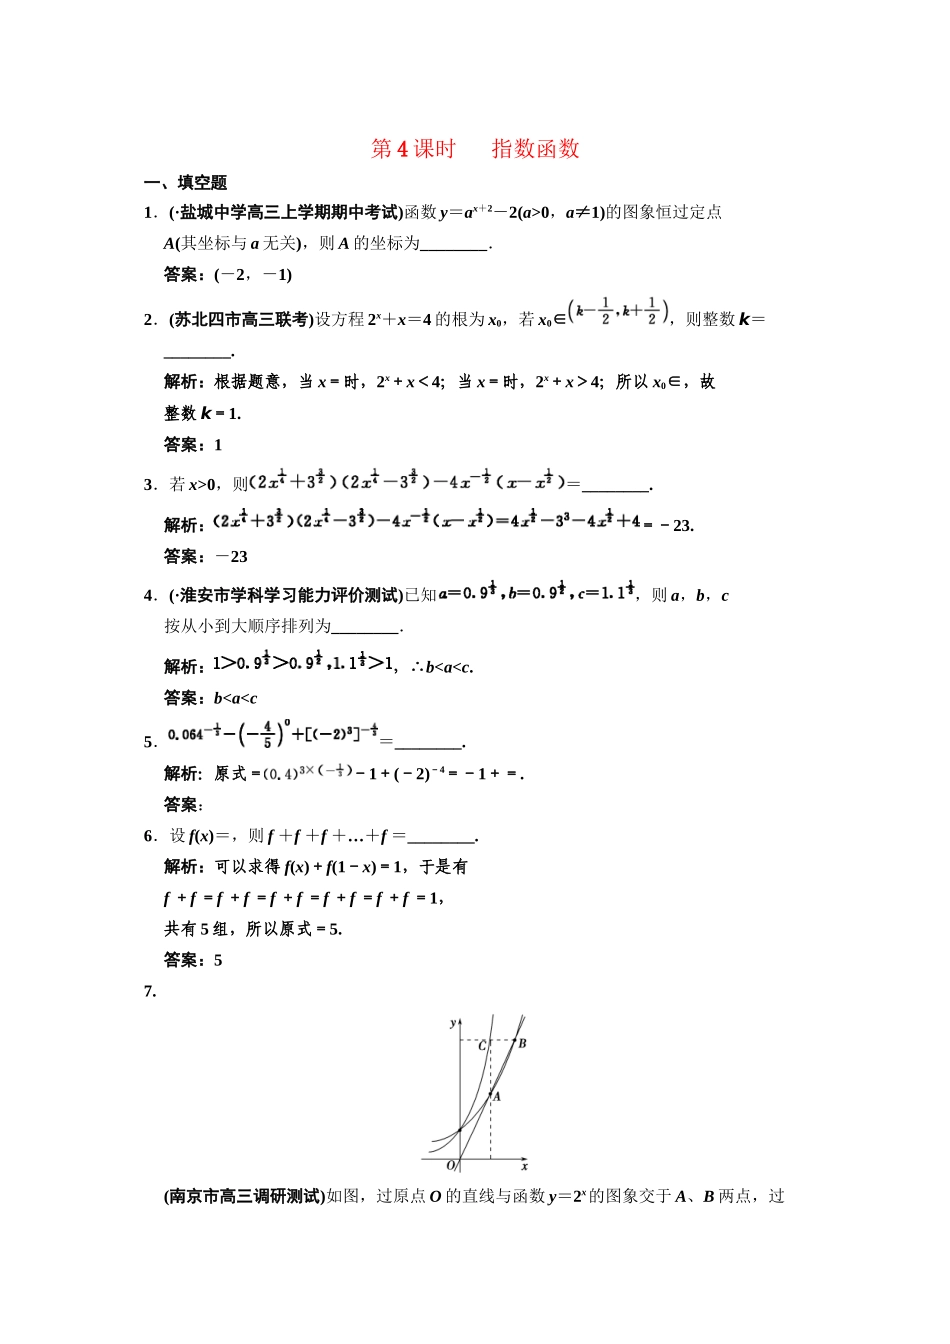 第 4 课时 指数函数
一、填空题
1．(·盐城中学高三上学期期中考试)函数 y＝aˣ⁺²－2(a>0，a≠1)的图象恒过定点
A(其坐标与 a 无关)，则 A 的坐标为________．
答案：(－2，－1)
2．(苏北四市高三联考)设方程 2ˣ＋x＝4 的根为 x₀，若 x₀∈(k－1/2，k＋1/2)，则整数 k＝
________.
解析：根据题意，当 x＝时，2ˣ＋x＜4；当 x＝时，2ˣ＋x＞4；所以 x₀∈，故
整数 k＝1.
答案：1
3．若 x>0，则(2x^{1/4}＋3^{3/2})(2x^{1/4}－3^{3/2})－4x^{-1/2}(x－x^{1/2})＝________.
解析：(2x^{1/4}＋3^{3/2})(2x^{1/4}－3^{3/2})－4x^{-1/2}(x－x^{1/2})＝4x^{1/2}－3³－4x^{1/2}＋4＝－23.
答案：－23
4．(·淮安市学科学习能力评价测试)已知a＝0.9^{1/3}，b＝0.9^{1/2}，c＝1.1^{1/3}，则 a，b，c
按从小到大顺序排列为________．
解析：1＞0.9^{1/3}＞0.9^{1/2}，1.1^{1/3}＞1，∴b<a<c.
答案：b<a<c
5．0.064^{-1/3}－(－4/5)⁰＋[(－2)³]^{-4/3}＝________.
解析：原式＝(0.4)^{3×(－1/3)}－1＋(－2)⁻⁴＝－1＋＝.
答案：
6．设 f(x)＝，则 f ＋f ＋f ＋…＋f ＝________.
解析：可以求得 f(x)＋f(1－x)＝1，于是有
f ＋f ＝f ＋f ＝f ＋f ＝f ＋f ＝f ＋f ＝1，
共有 5 组，所以原式＝5.
答案：5
7.
y
C
B
A
O
x
(南京市高三调研测试)如图，过原点 O 的直线与函数 y＝2ˣ的图象交于 A、B 两点，过